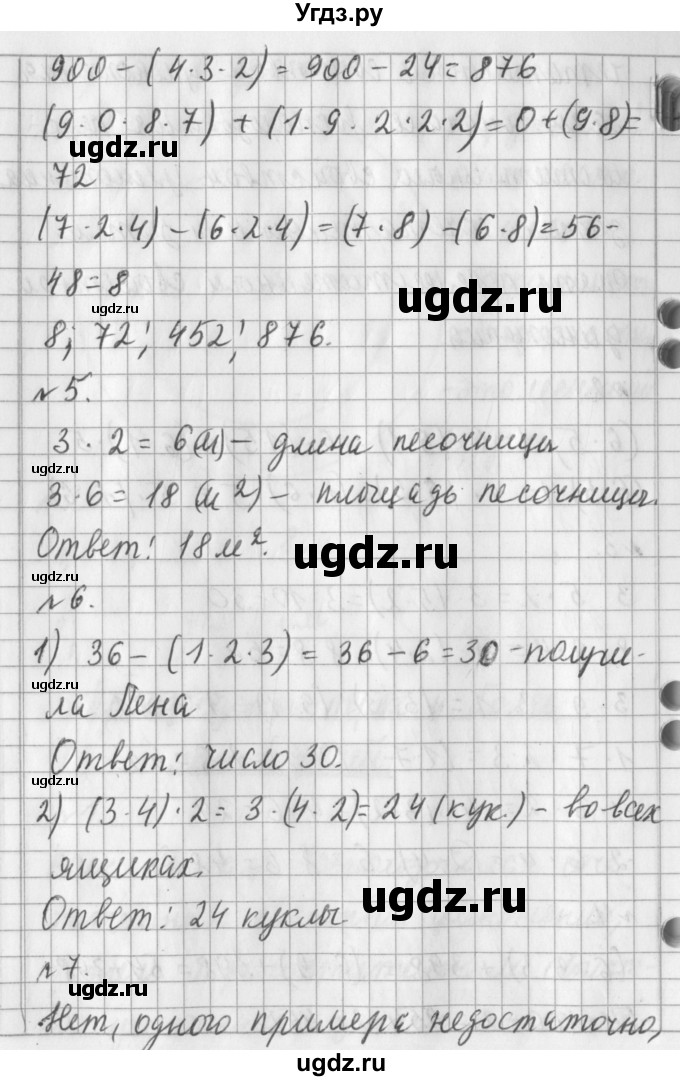 Угдз.ру
900 - (4·3·2) = 900 - 24 = 876
(9·0·8·7) + (1·9·2·2·2) = 0 + (9·8) =
ugdz.ru
72
(7·2·4) - (6·2·4) = (7·8) - (6·8) = 56 -
48 = 8
ugdz.ru
ugdz.ru
8; 72; 452; 876.
№5.
3·2 = 6 (м) - длина песочницы
ugdz.ru
3·6 = 18 (м2) - площадь песочницы.
Ответ: 18 м².
ugdz.ru
ugdz.ru
№6.
1) 36 - (1·2·3) = 36 - 6 = 30 - получи-
ugdz.ru
ла Лена
Ответ: число 30.
ugdz.ru
2) (3·4)·2 = 3·(4·2) = 24 (кук.) - во всех
ящиках.
ugdz.ru
Ответ: 24 куклы
№7.
ugdz.ru
Нет, одного примера недостаточно,
ugdz.ru